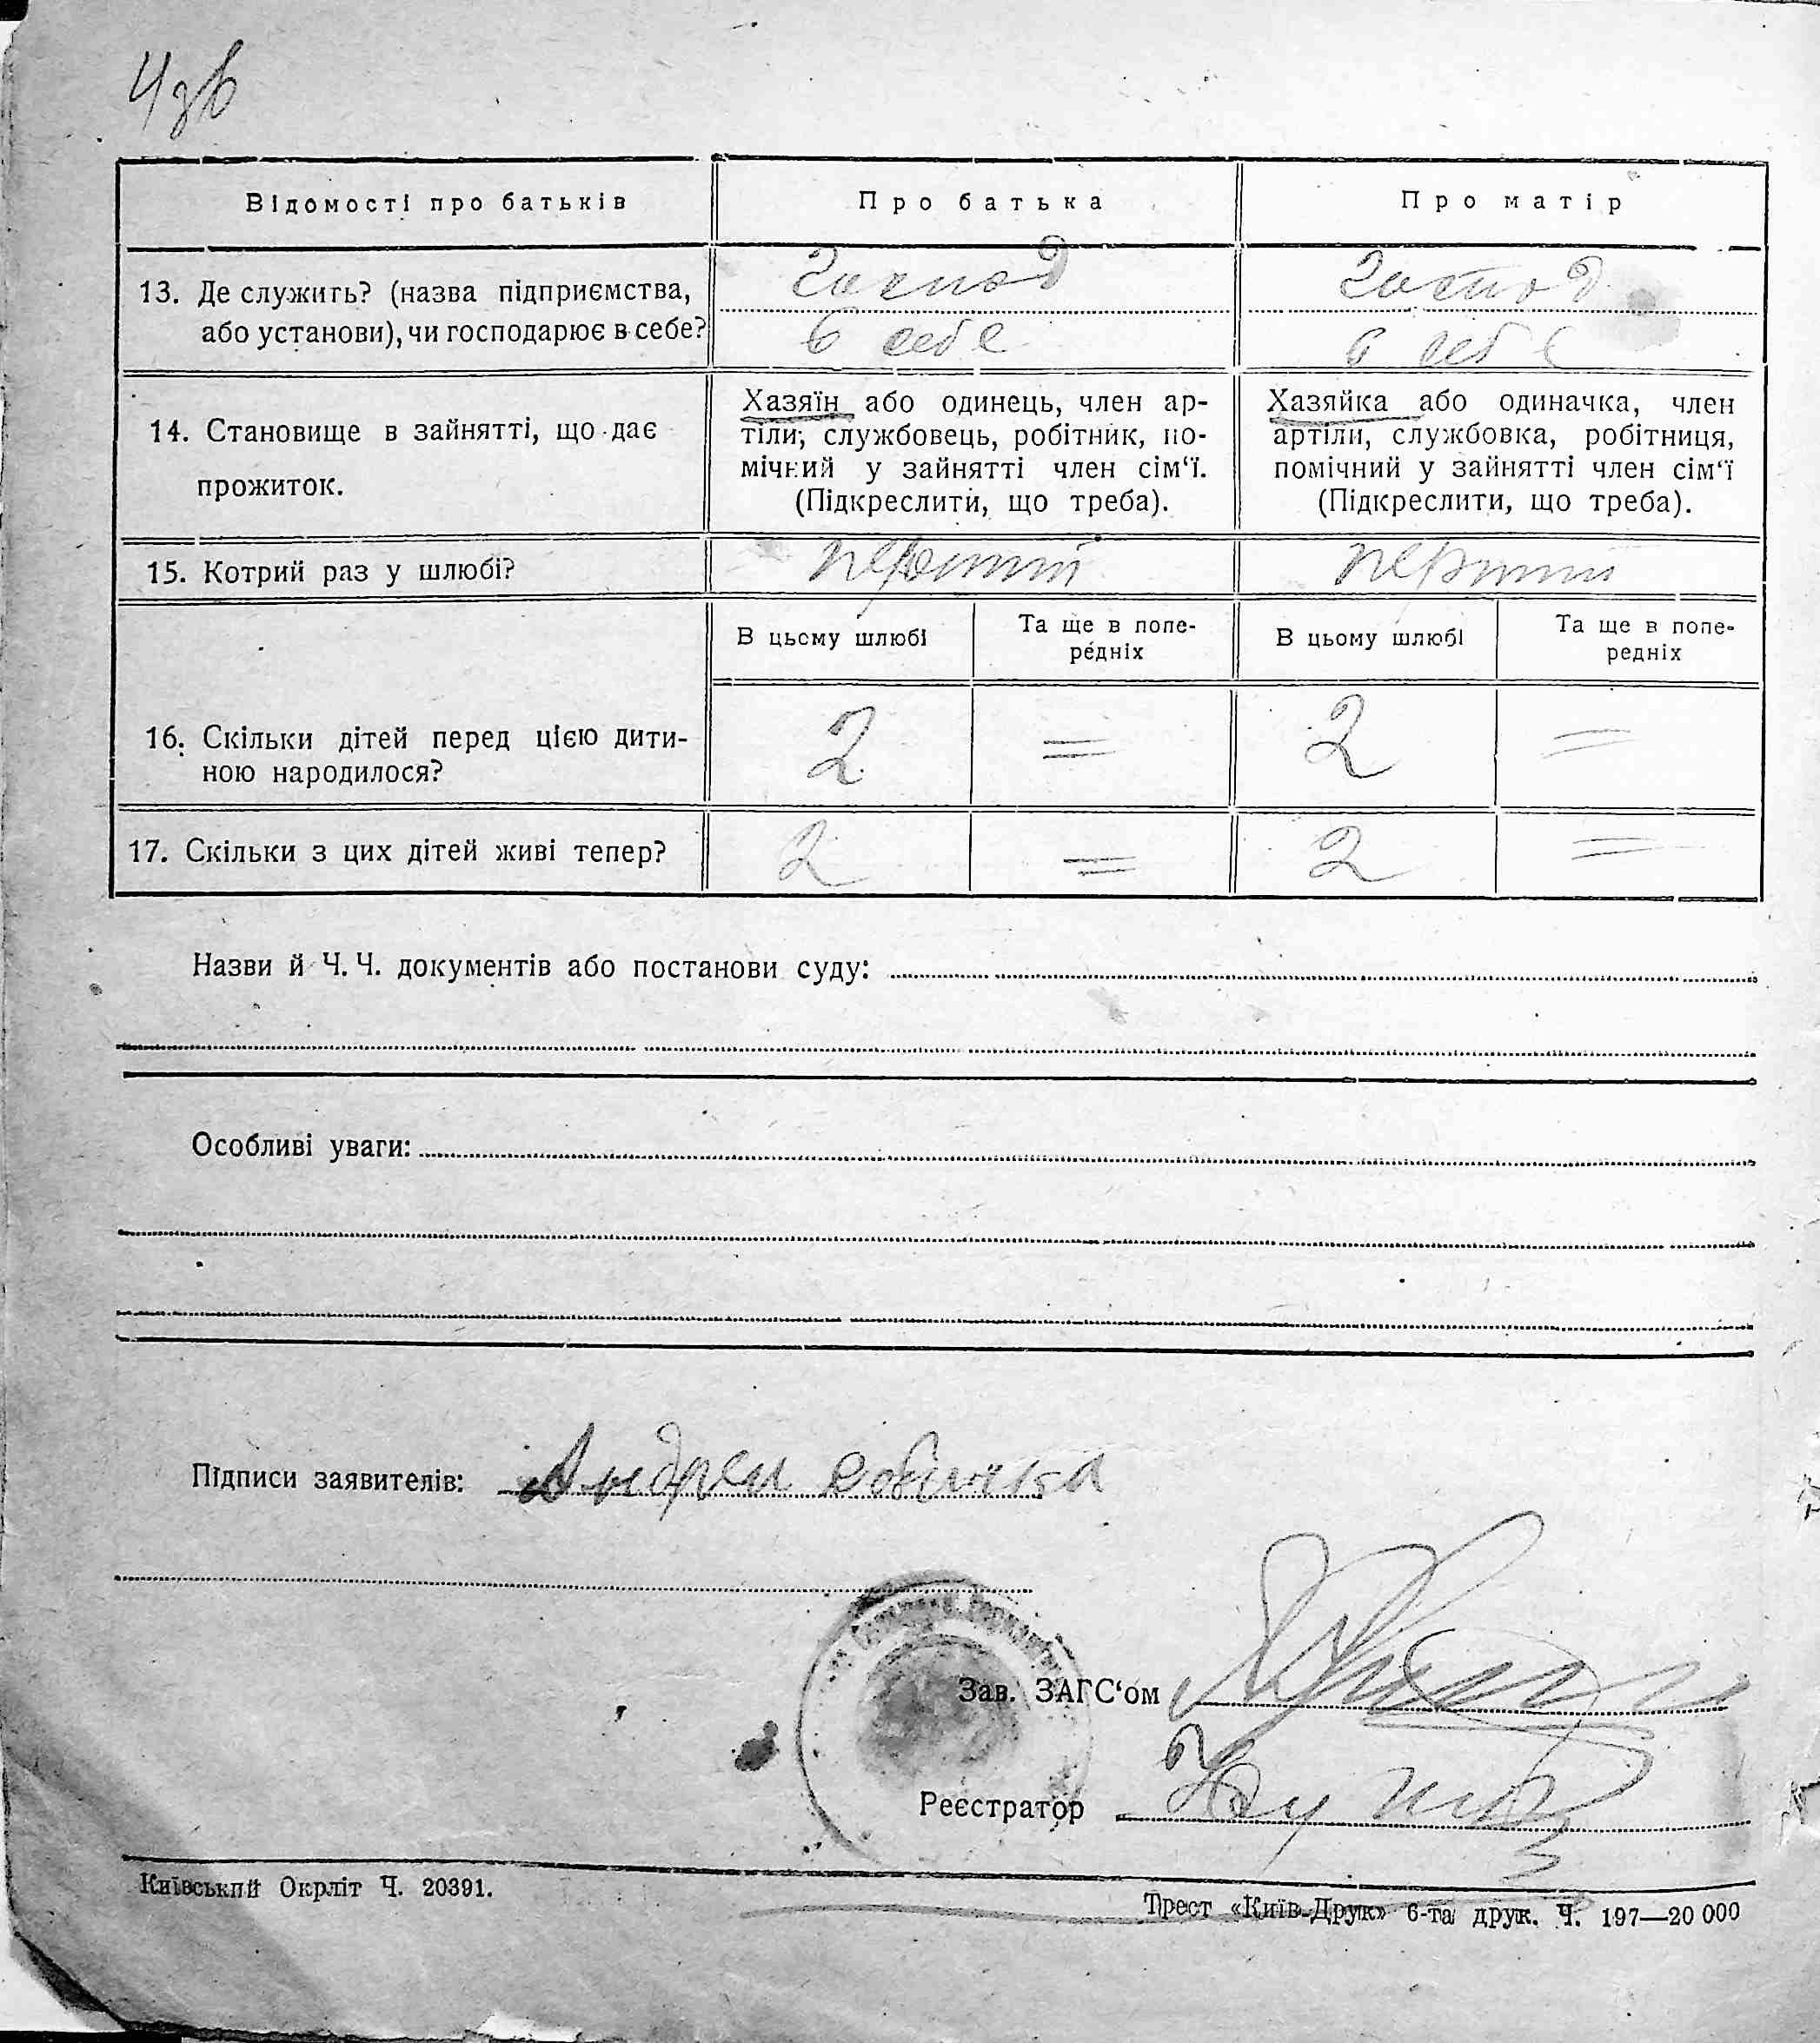 4зв
Відомості про батьків
Про батька
Про матір
13. Де служить? (назва підприємства,
або установи), чи господарює в себе?
Господ
в себе
Господ
в себе
14. Становище в зайнятті, що дає
прожиток.
Хазяїн або одинець, член ар-
тіли, службовець, робітник, по-
мічний у зайнятті член сім‘ї.
(Підкреслити, що треба).
Хазяйка або одиначка, член
артіли, службовка, робітниця,
помічний у зайнятті член сім‘ї
(Підкреслити, що треба).
15. Котрий раз у шлюбі?
перший
перший
В цьому шлюбі
Та ще в попе-
редніх
В цьому шлюбі
Та ще в попе-
редніх
16. Скільки дітей перед цією дити-
ною народилося?
2
=
2
=
17. Скільки з цих дітей живі тепер?
2
=
2
=
Назви й Ч. Ч. документів або постанови суду:
Особливі уваги:
Підписи заявителів: Андреи
Зав. ЗАГС‘ом
Реєстратор
Київський Окрліт Ч. 20391.
Трест «Київ-Друк» 6-та друк. Ч. 197—20 000